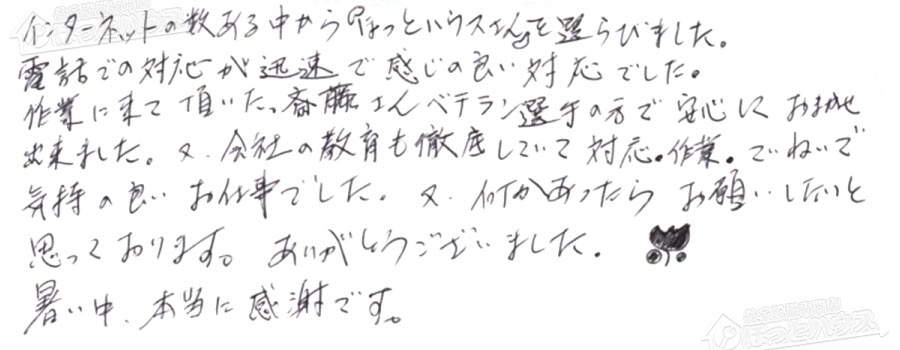 インターネットの数ある中から『ほっとハウスさん』を選らびました。
電話での対応が迅速で感じの良い対応でした。
作業に来て頂いた、斎藤さんベテラン選手の方で安心しておまかせ
出来ました。又、会社の教育も徹底していて対応。作業。ていねいで
気持の良いお仕事でした。又、何かあったらお願いしたいと
思っております。ありがとうございました。
暑い中、本当に感謝です。
ほっとハウス